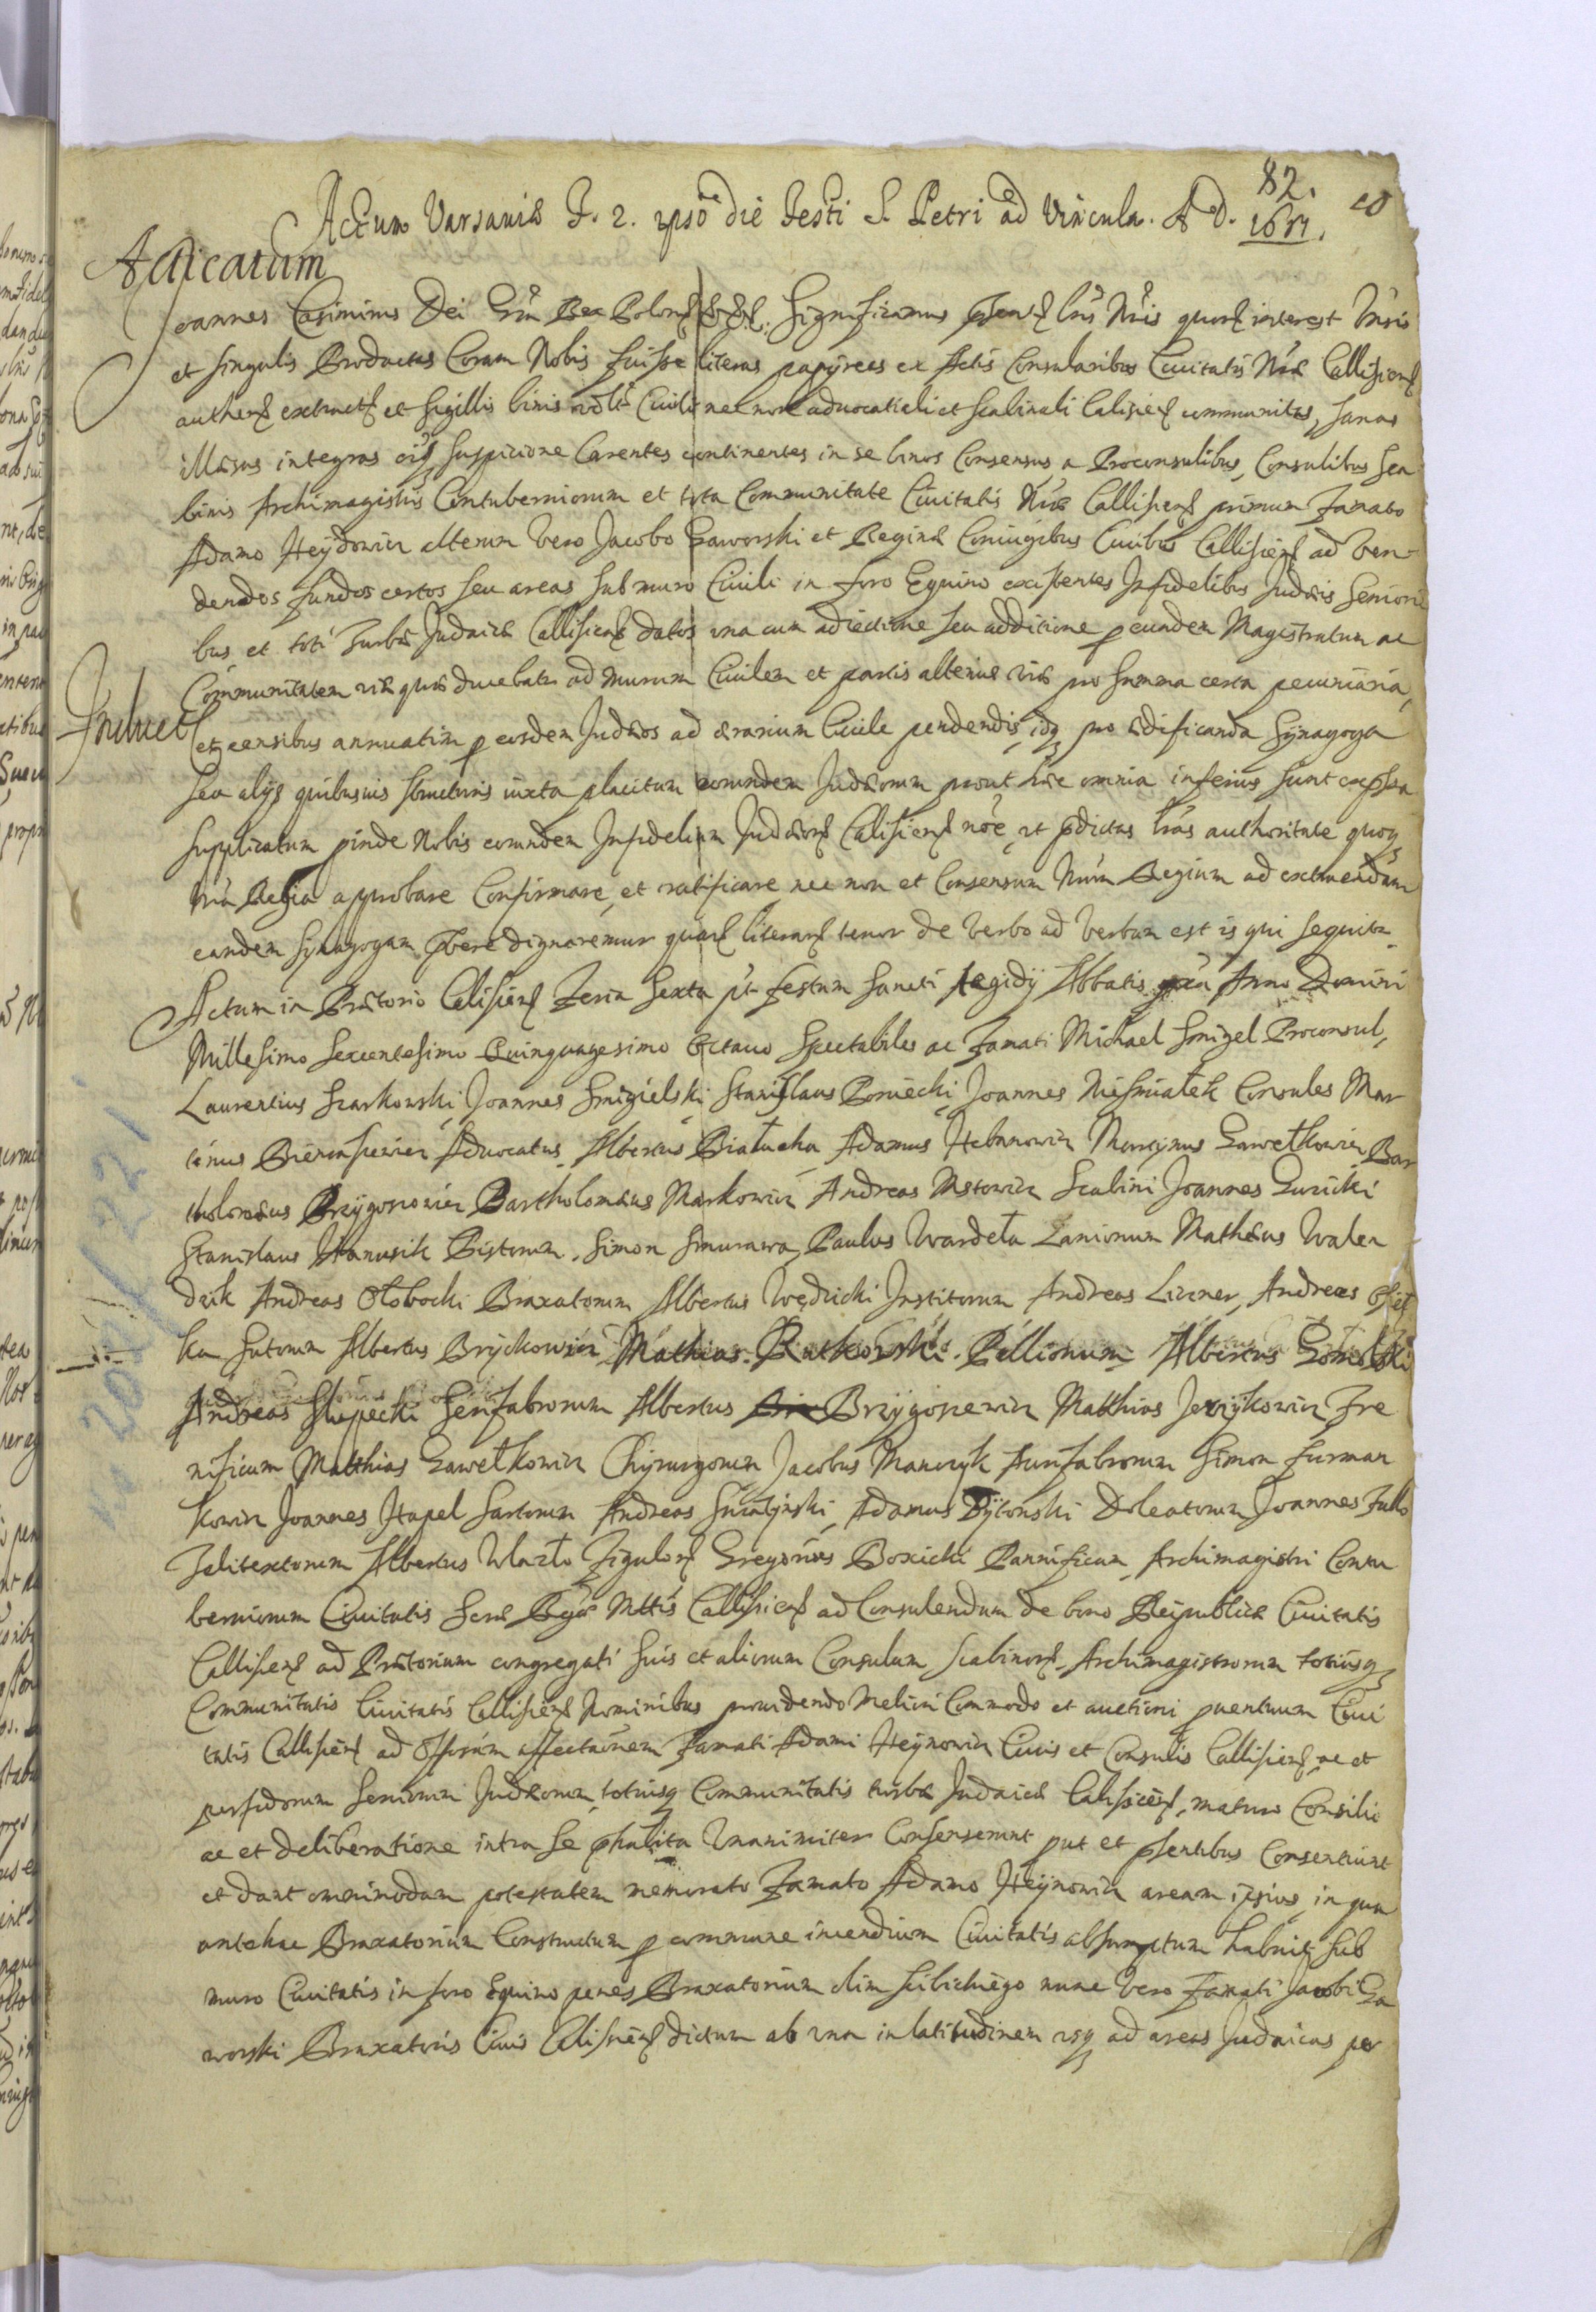 82. 20
Actum Varsaviæ F. 2. ipsō die Festi S. Petri ad Vincula. A D. 1659.
Acticatum
Joannes Casimirus Dei Grā Rex Polon Significamus pñtib lrīs Nrīs quor interest Vnīs
et singulis Productas Coram Nobis fuisse literas papyreas ex Actis Consularibus Ciuitatis Nræ Callisien
authen extract et Sigillis binis Ciuili nec non aduocatiali et scabinali Calisien communitas, sanas
illæsas integras oīq suspicione Carentes continentes in se binos Consensus a Proconsulibus, Consulibus Sca
binis Archimagistris Contuberniorum et tota Communitate Ciuitatis Nræ Callisien primum Famato
Adamo Heydowicz alterum Vero Jacobo Gaworski et Reginæ Coniugibus Ciuibus Callisien ad Ven
dendos fundos certos seu areas sub muro Ciuili in foro Equino existentes Infidelibus Judæis Seniori
bus et toti Turbæ Judaicæ Callisien datos una cum adiectione seu additione p eundem Magistratum ac
Communitatem viæ quæ ducebat ad murum Ciuilem et partis alterius viæ pro summa certa pecuniaria,
Induct
et censibus annuatim p eosdem Judæos ad ærarium Ciuile pendendis, idq pro ædificanda Synagoga
seu alijs quibusuis structuris iuxta placitum eorundem Judæorum prout hæc omnia inferius sunt expssa
supplicatum pinde Nobis eorundem Infidelium Judæor Calisien noē, ut pdictas lrās authoritate quoq
nrā Regia approbare Confirmare, et ratificare nec non et Consensum Nrūm Regium ad extruendam
eandem Synagogam pbere dignaremur quar literar tenor de verbo ad verbum est is qui sequitur.
Actum in Prætorio Calisien Feria Sexta pt festum Sancti Aegidij Abbatis pxa Anno Domini
Millesimo Sexcentesimo Quinquagesimo Octauo Spectabiles ac Famati Michael Smigel Proconsul,
Laurentius Szarkowski, Joannes Smigielski Stanislaus Poniecki, Joannes Niesmiałek Consules Mar
tinus Aduocatus, Albertus Białucha Adamus Hebanowicz Martinus Gawełkowicz Bar
tholomæus Brzygoniewicz Bartholomæus Markowicz Andreas Mstowicz Scabini Joannes Gurzicki
Stanislaus Hanusik Pistorum, Simon Smurawa, Paulus Wardęła Lanionum Mathæus Walen
dzik Andreas Ołobocki Braxatorum Albertus Wędzicki Institorum Andreas Linner, Andreas
ka Sutorum Albertus Bryckowicz Mathias Rutkowski Pellionum Albertus
Andreas Słupecki Serifabrorum Albertus Brzygoniewicz Matthias Jerzykowicz Fre
nificum Matthias Gawełkowicz Chyrurgorum Jacobus Manczyk Aurifabrorum Simon Furman
kowicz Joannes Hapel Sartorum Andreas Adamus Dytonski Doleatorum Joannes Fullo
Telitextorum Albertus Wlazło Figulor Gregorius Boxicki Pannificum, Archimagistri Contu
berniorum Ciuitatis Sacræ Rgiæ Mttis Callisien ad Consulendum de bono Reipublicæ Ciuitatis
Callisien ad Prætorium congregati suis et aliorum Consulum Scabinor, Archimagistrorum totiusq
Communitatis Ciuitatis Callisien Nominibus prouidendo Meliori Commodo et auctioni puentuum Ciui
tatis Callisien ad affectationem Famati Adami Heynowicz Ciuis et Consulis Callisien, ac et
perfidorum Seniorum Judæorum, totiusq Communitatis turbæ Judaicæ Calisien, maturo Consilio
ac et deliberatione intra se phabita Vnanimiter Consenserunt put et psentibus Consentiunt
et dant omnimodam potestatem memorato Famato Adamo Heynowicz aream ipsius, in qua
antehac Braxatorium Constructum p commune incendium Ciuitatis absumptum habuit sub
muro Ciuitatis in foro Equino penes Braxatorium olim nunc vero Famati Jacobi Ga
worski Braxatoris Ciuis Calisien dictum ab vna in latitudinem vsq ad areas Judaicas per